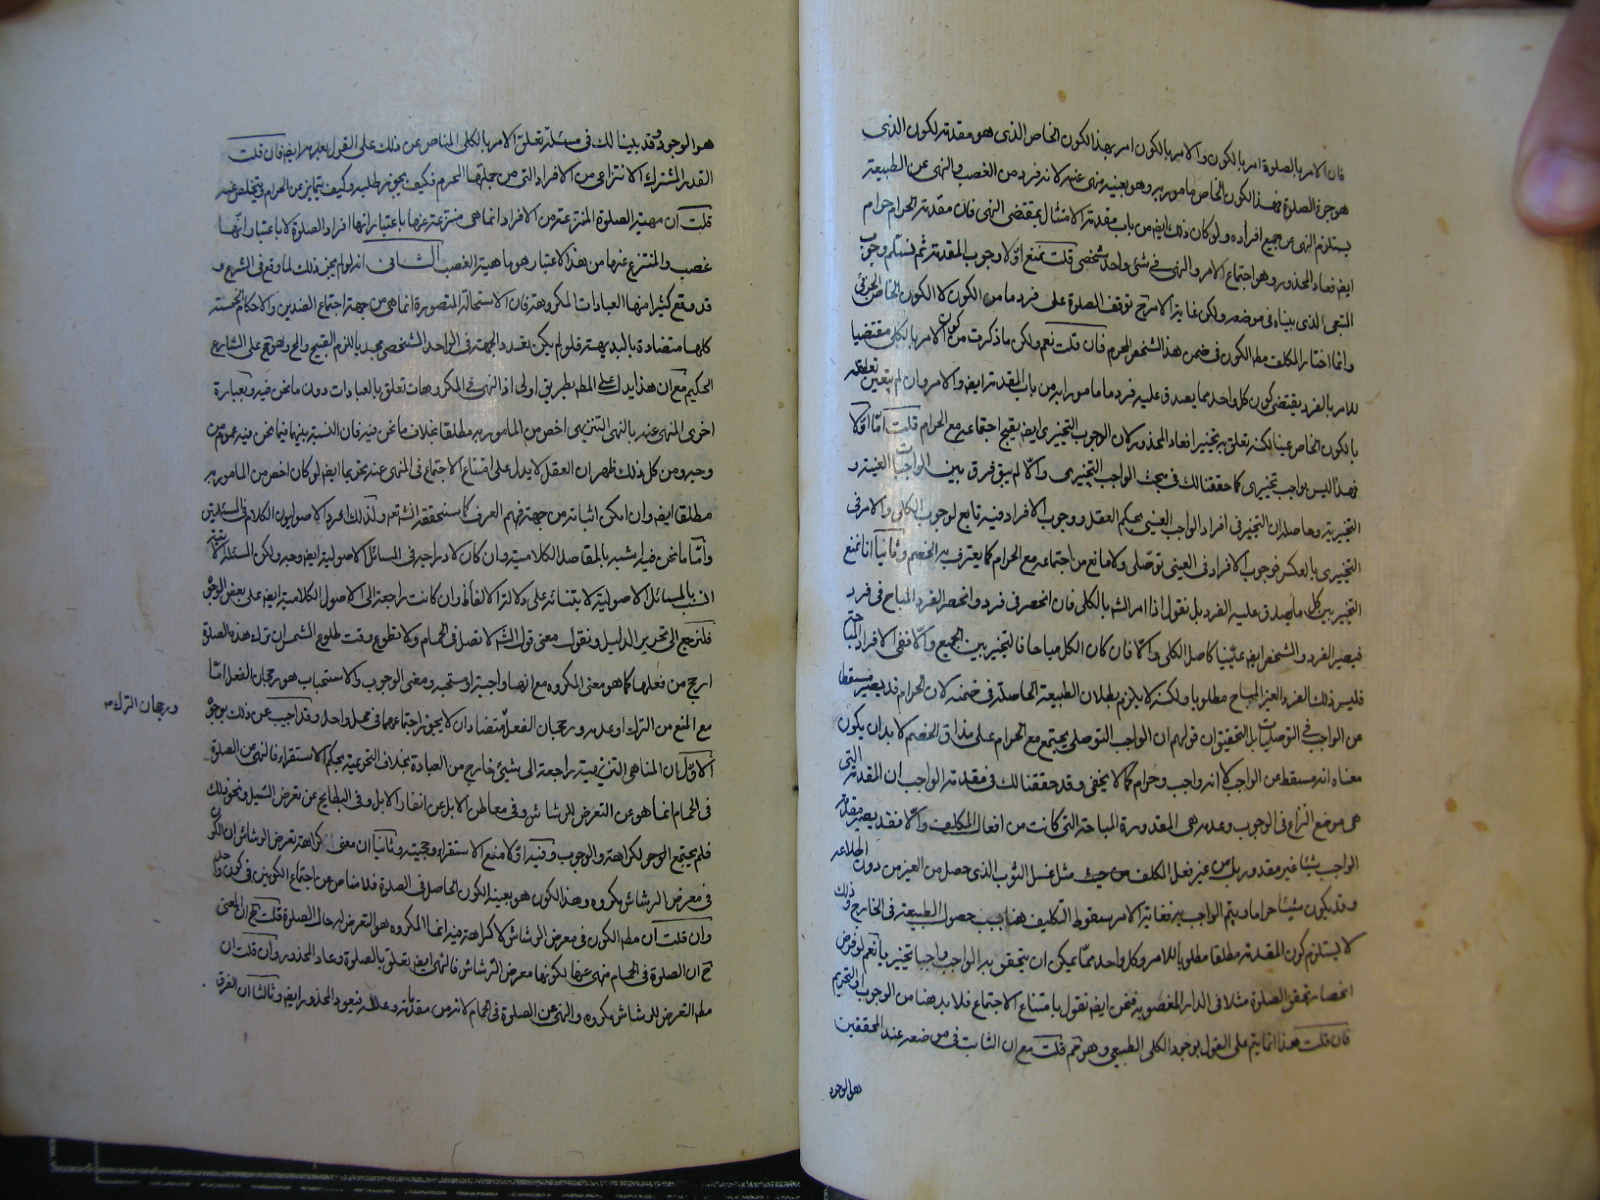 فان الامر بالصلوة امر بالكون والامر بالكون امر بهذا الكون الخاص الذى هو مقدمة للكون الذى
هو جزء الصلوة فهذا الكون الخاص مامور به وهو بعينه منهى عنه لانه فرد من الغصب والنهى عن الطبيعة
يستلزم النهى عن جميع افراده ولو كان ذلك ايضا من باب مقدمة الامتثال بمقتضى النهى فان مقدمة الحرام حرام
ايضا فعاد المحذور وهو اجتماع الامر والنهى فى شئ واحد شخصى قلت نمنع اولا وجوب المقدمة ثم نسلم وجوب
التبعى الذى بيناه فى موضعه ولكن غاية الامر توقف الصلوة على فرد ما من الكون لا الكون الخاص الجزئى
وانما اختار المكلف مط الكون فى ضمن هذا الشخص المحرم فان قلت نعم ولكن ما ذكرت من كون الامر بالكلى مقتضيا
للامر بالفرد يقتضى كون كل واحد مما يصدق عليه فرد ما مامورا به من باب المقدمة ايضا والامر وان لم يتعين تعلقه
بالكون الخاص عينا لكنه تعلق به تخييرا فعاد المحذور لان الوجوب التخييرى ايضا يقبح اجتماعه مع الحرام قلت اما اولا
فهذا ليس بواجب تخييرى كما حققنا لك فى مبحث الواجب التخييرى والا لم يبق فرق بين الواجبات العينية و
التخييرية وحاصله ان التخيير فى افراد الواجب العينى بحكم العقل ووجوب الافراد فيه تابع لوجوب الكلى والامر فى
التخييرى بالعكس فوجوب الافراد فى العينى توصلى ولا مانع من اجتماعه مع الحرام كما يعترف به الخصم وثانيا انا نمنع
التخيير بين كل ما يصدق عليه الفرد بل نقول اذا امر الشه بالكلى فان انحصر فى فرد وانحصر الفرد المباح فى فرد
فيصير الفرد والشخص ايضا عينيا كاصل الكلى والا فان كان الكل مباحا فالتخيير بين الجميع والا ففى الافراد المباحة
فليس ذلك الفرد الغير المباح مطلوبا ولكنه لا يلزم بطلان الطبيعة الحاصلة فى ضمنه لان الحرام قد يصير مسقطا
عن الواجب فى التوصليات بل التحقيق ان قولهم ان الواجب التوصلى يجتمع مع الحرام على مذاق الخصم لا بد ان يكون
معناه انه مسقط عن الواجب لا انه واجب وحرام كما لا يخفى وقد حققنا لك فى مقدمة الواجب ان المقدمة التى
هى موضع النزاع فى الوجوب وعدمه هى المقدورة المباحة التى كانت من افعال المكلف والا فقد يصير مقدمة
الواجب شيئا غير مقدور بل من غير فعل المكلف من حيث مثل غسل الثوب الذى حصل من الغير من دون اطلاعه
وقد يكون شيئا حراما ويتم الواجب به فغاية الامر سقوط التكليف هنا بسبب حصول الطبيعة فى الخارج وذلك
لا يستلزم كون المقدمة مطلقا مطلوبا للامر وكل واحد مما يمكن ان يتحقق به الواجب واجبا تخييريا نعم لو فرض
انحصار تحقق الصلوة مثلا فى الدار المغصوبة فنحن ايضا نقول بامتناع الاجتماع فلا بد هنا من الوجوب او التحريم
فان قلت هذا انما يتم على القول بوجود الكلى الطبيعى وهو مم قلت مع ان الثابت فى موضعه عند المحققين
هو الوجود
هو الوجود وقد بينا لك فى مسئلة تعلق الامر بالكلى المناص عن ذلك على القول بعدمه ايضا فان قلت
القدر المشترك الانتزاعى من الافراد التى من جملتها المحرم فكيف يجوز طلبه وكيف يتمايز عن الحرام ويتخلص عنه
قلت ان مهية الصلوة المنتزعة من الافراد انما هى منتزعة عنها باعتبار انها افراد الصلوة لا باعتبار انها
غصب والمنتزع عنها من هذا الاعتبار هو ماهية الغصب الثانى انه لو لم يجز ذلك لما وقع فى الشرع و
قد وقع كثيرا منها العبادات المكروهة فان الاستحالة المتصورة انما هى من جهة اجتماع الضدين والاحكام الخمسة
كلها متضادة بالبديهة فلو لم يكن تعدد الجهة فى الواحد الشخصى مجديا للزم القبيح والمح وهو مح على الشارع
الحكيم مع ان هذا يدل على المط بطريق اولى اذ النهى فى المكروهات تعلق بالعبادات دون ما نحن فيه وبعبارة
اخرى المنهى عنه بالنهى التنزيهى اخص من المامور به مطلقا بخلاف ما نحن فيه فان النسبة بينهما فيما نحن فيه عموم من
وجه ومن كل ذلك ظهر ان العقل لا يدل على امتناع الاجتماع فى المنهى عنه تحريما ايضا لو كان اخص من المامور به
مطلقا ايضا وان امكن اثباته من جهة فهم العرف كما سنحققه انشه تعه ولذلك افرد الاصوليون الكلام فى المسئلتين
واما ما نحن فيه اشبه بالمقاصد الكلامية وان كان لادراجه فى المسائل الاصولية ايضا وجه ولكن المسئلة الاتية
انسب بالمسائل الاصولية لابتنائه على دلالة الالفاظ وان كانت راجعة الى الاصول الكلامية ايضا على بعض الوجوه
فلنرجع الى تحرير الدليل ونقول معنى قول الشه لا تصل فى الحمام ولا تطوع وقت طلوع الشمس ان ترك هذه الصلوة
ارجح من فعلها كما هو معنى المكروه مع انها واجبة او مستحبة ومعنى الوجوب والاستحباب هو رجحان الفعل اما
مع المنع من الترك او عدمه ورجحان الفعل متضادان لا يجوز اجتماعهما فى محل واحد وقد اجيب عن ذلك بوجوه
ورجحان الترك صح
الاول ان المناهى التنزيهية راجعة الى شيئ خارج من العبادة بخلاف التحريمية بحكم الاستقراء فالنهى عن الصلوة
فى الحمام انما هو عن التعرض للرشاش وفى معاطن الابل عن انفار الابل وفى البطايح عن تعرض السيل ونحو ذلك
فلم يجتمع الوجوب والكراهة وفيه اولا منع الاستقراء وحجيته وثانيا ان معنى كراهة تعرض الرشاش ان الكون
فى معرض الرشاش مكروه وهذا الكون هو بعينه الكون الحاصل فى الصلوة فلا مناص عن اجتماع الكونين فى كون واحد
وان قلت ان مط الكون فى معرض الرشاش لا كراهة فيه انما المكروه هو التعرض له حال الصلوة قلت مع ان المعنى
ح ان الصلوة فى الحمام منهى عنها لكونها معرض الرشاش فالنهى ايضا تعلق بالصلوة وعاد المحذور وان قلت ان
مط التعرض للرشاش مكروه والنهى عن الصلوة فى الحمام لانه من مقدماته وعلله فيعود المحذور ايضا وثالثا ان الفرق